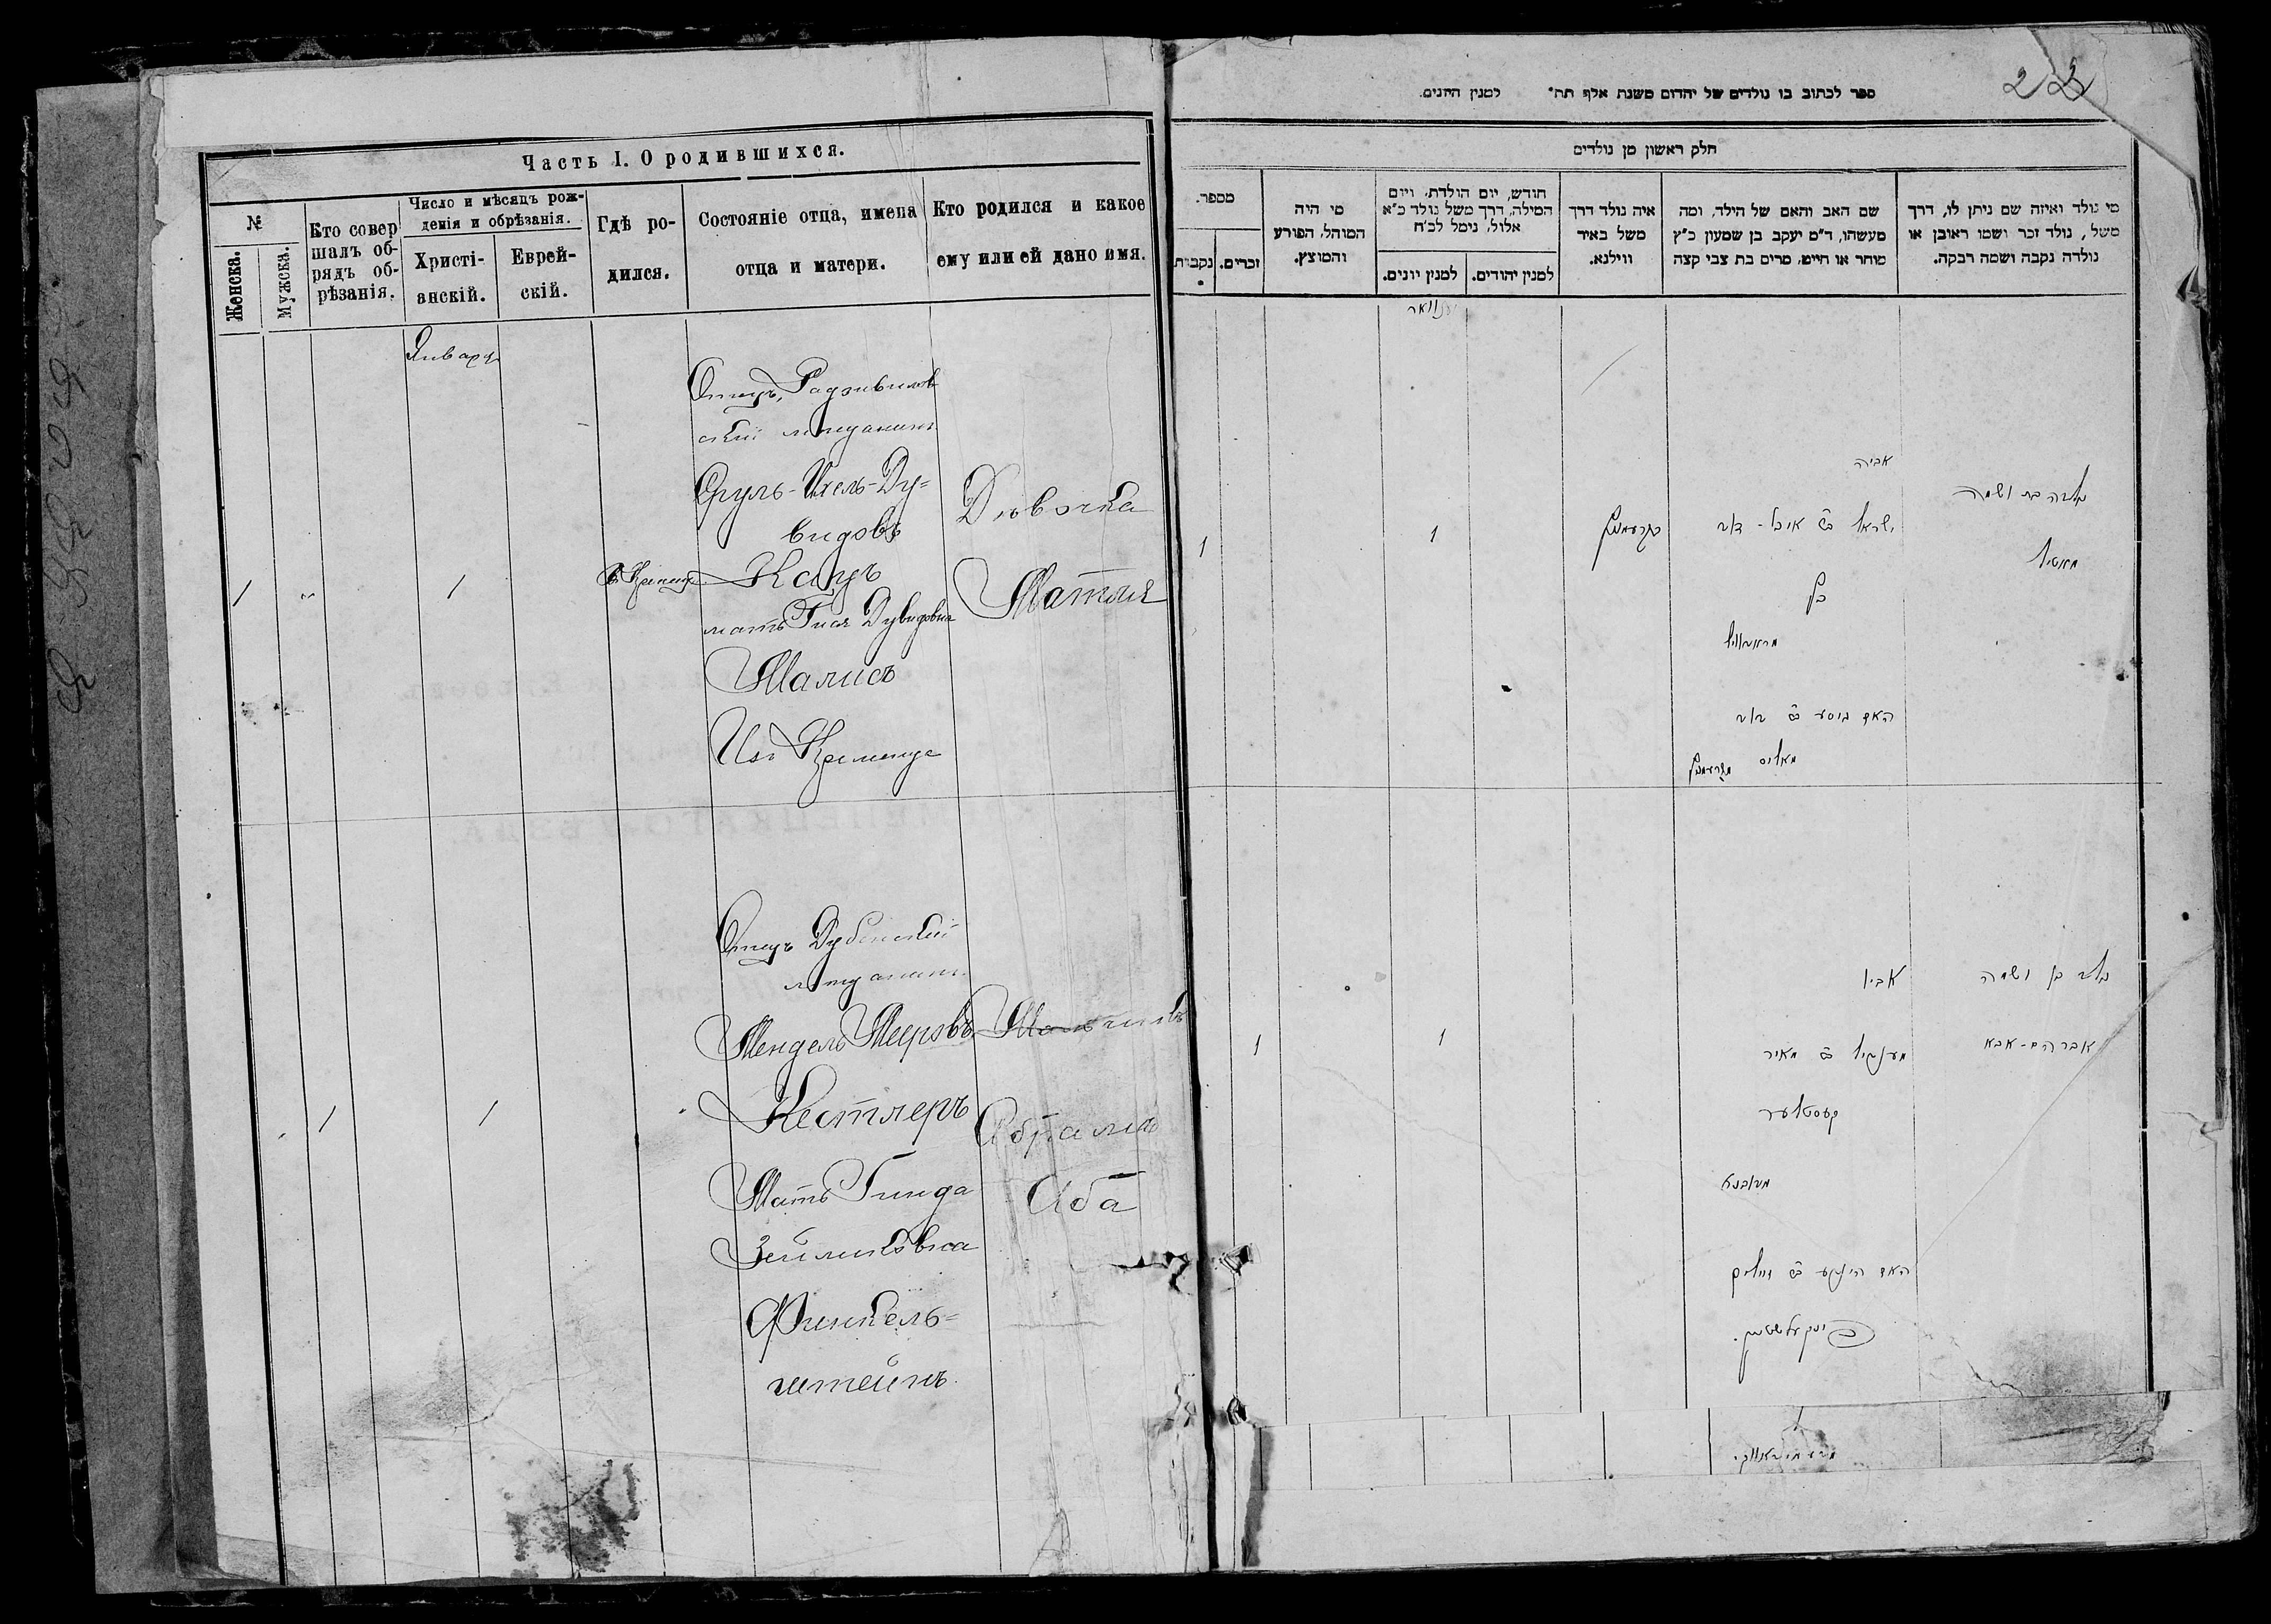 Часть I. О родившихся.
№
Женска.
Мужска.
Кто совер
шалъ об-
рядъ об-
рѣзанія.
Число и мѣсяцъ рож-
денія и обрѣзанія.
Христі-
анскій.
Еврей-
скій.
Гдѣ ро-
дился.
Состояніе отца, имена
отца и матери.
Кто родился и какое
ему или ей дано имя.
Января
Отецъ, Радзивилов
скій мещанинъ
Сруль-Ихель-Ду-
видовъ
Кацъ
мать Гися Дувидовна
Малисъ
Изъ Кременца
Дѣвочка
Матля
1 " 1
Отецъ Дубенскій
мещанинъ
Мендель Мееровъ
Кестлеръ
Мать Гинда
Зейликовна
Финкель-
штейнъ.
Мальчикъ
Абрамъ
Аба
1 1
22
ספר לכתוב בו נולדים של יהדום משנת אלף תת" למנין היונים.
חלק ראשון מן נולדים
מספר.
נקבות
זכרים.
מי היה
המוהל, הפורע
והמוצץ.
חודש, יום הולדת, ויום
המילה, דרך משל נולד כ"א
אלול, נימל לכ"ח
למנין יונים.
למנין יהודים.
איה נולד דרך
משל באיר
ווילנא.
שם האב והאם של הילד, ומה
מעשהו, ד"מ יעקב בן שמעון כ"ץ
סוחר או חייט, מרים בת צבי קצה
מי נולד ואיזה שם ניתן לו, דרך
משל, נולד זכר ושמו ראובן או
נולדה נקבה ושמה רבקה.
יענוואר
1 1
אביה
ישראל
כץ
האם
מאליס
נולדה בת ושמה
מאטיל
1 1
אביו
מענדיל מאיר
קעסטלער
מדובנא
האם הינדע
פינקעלשטיין.
נולד בן ושמה
אברהם-אבא